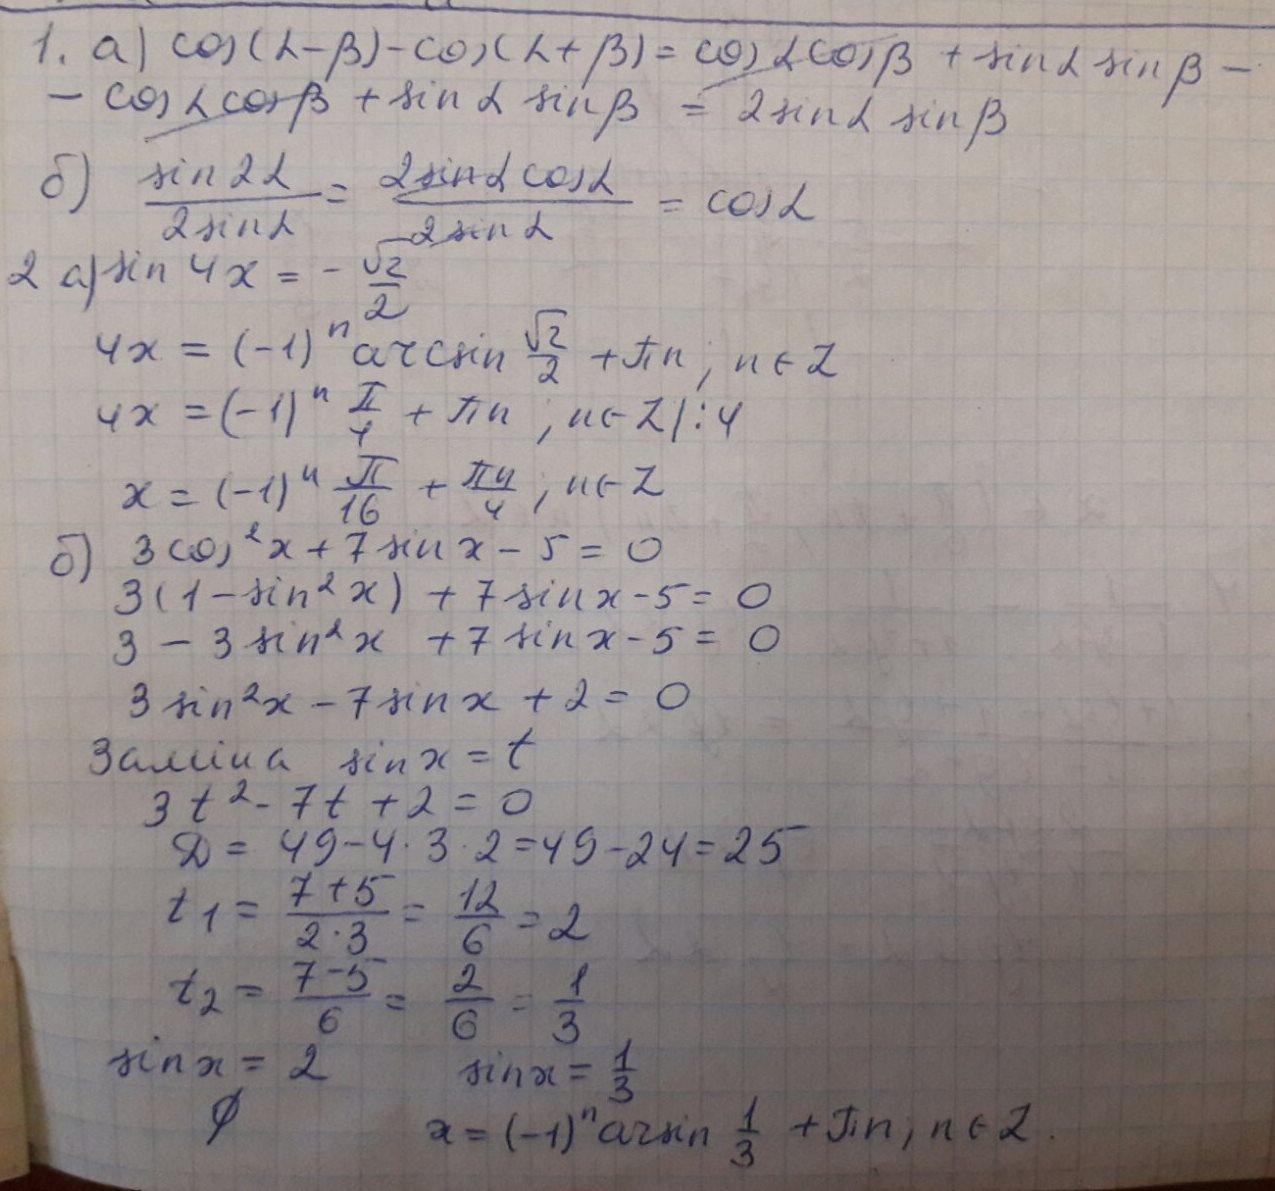 1. а) cos(α-β)-cos(α+β)= cosαcosβ + sinα sinβ -
- cosαcosβ + sinα sinβ = 2sinα sinβ
б) sin2α/2sinα = 2sinαcosα/2sinα = cosα
2 а) sin 4x = -√2/2
4x = (-1)ⁿ arcsin √2/2 + πn; n∈Z
4x = (-1)ⁿ π/4 + πn; n∈Z |:4
x = (-1)ⁿ π/16 + πn/4; n∈Z
б) 3cos²x + 7sinx - 5 = 0
3(1-sin²x) + 7sinx-5= 0
3 - 3sin²x + 7sinx-5= 0
3sin²x - 7sinx + 2= 0
Заміна sinx = t
3t²- 7t + 2 = 0
D = 49-4·3·2=49-24=25
t1 = 7+5/2·3 = 12/6 = 2
t2 = 7-5/6 = 2/6 = 1/3
sinx = 2 sinx = 1/3
∅ x = (-1)ⁿ arsin 1/3 + πn; n∈Z.